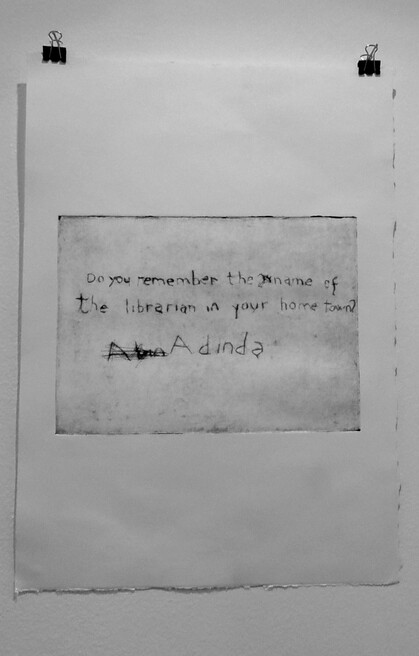 Do you remember the name of
the librarian in your home town?
Adinda